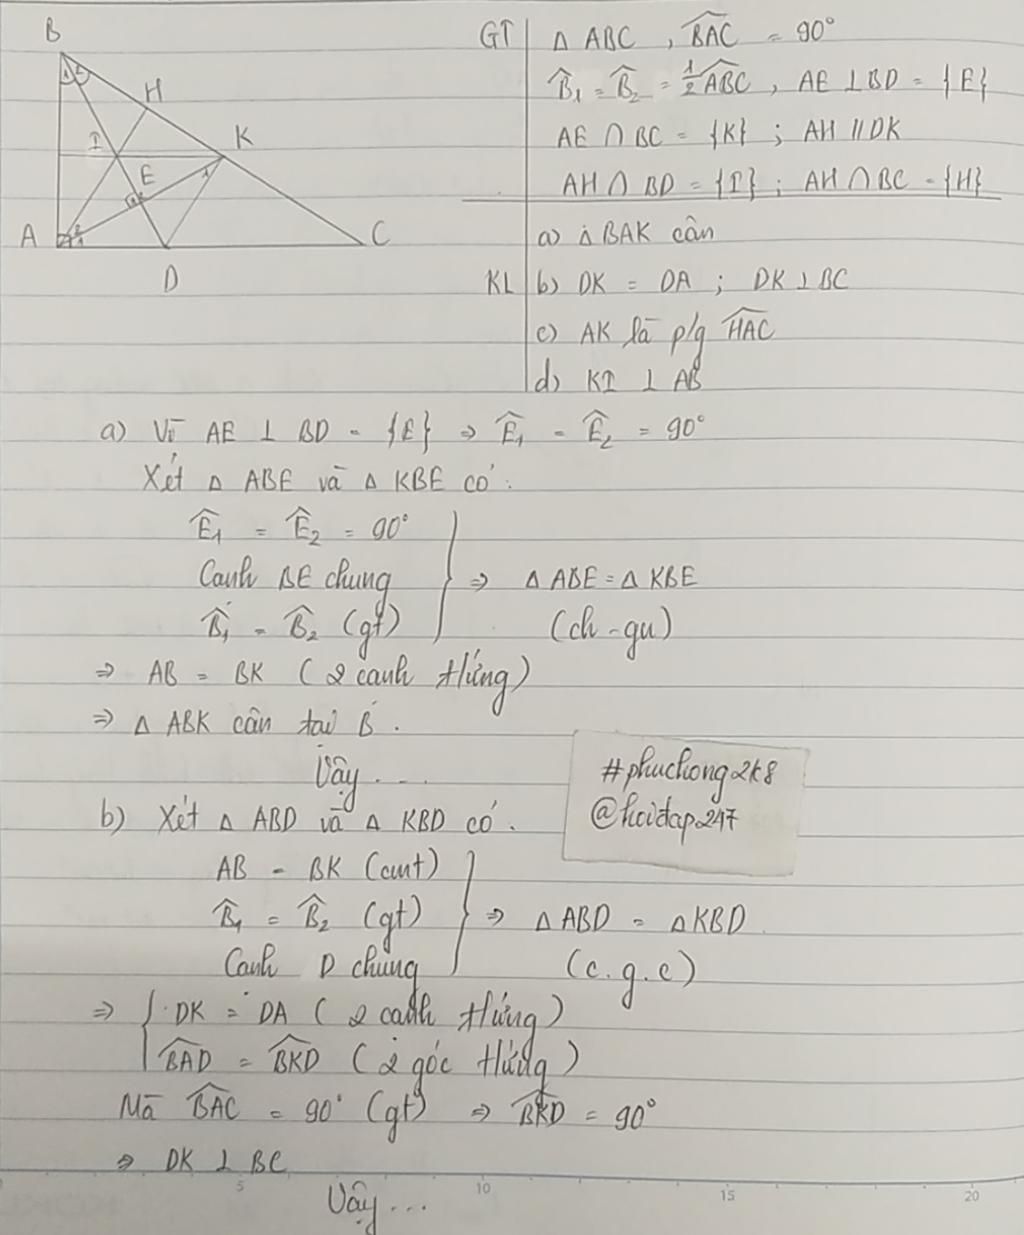 B
H
K
I
E
A
D
C
GT | △ ABC , \widehat{BAC} = 90°
\widehat{B}₁ = \widehat{B}₂ = ½\widehat{ABC} , AE ⊥ BD = {E}
AE ∩ BC = {K} ; AH // DK
AH ∩ BD = {I} ; AH ∩ BC = {H}
a) △ BAK cân
KL | b) DK = DA ; DK ⊥ BC
c) AK là p/g \widehat{HAC}
d) KI ⊥ AB
a) Vì AE ⊥ BD = {E} ⇒ \widehat{E}₁ = \widehat{E}₂ = 90°
Xét △ ABE và △ KBE có:
\widehat{E}₁ = \widehat{E}₂ = 90°
Cạnh BE chung } ⇒ △ ABE = △ KBE
\widehat{B}₁ = \widehat{B}₂ (gt) (ch - gn)
⇒ AB = BK (2 cạnh tứng)
⇒ △ ABK cân tại B.
Vậy ...
#phuchong2k8
@hoidap247
b) Xét △ ABD và △ KBD có:
AB = BK (cmt)
\widehat{B}₁ = \widehat{B}₂ (gt) } ⇒ △ ABD = △ KBD
Cạnh D chung (c.g.c)
⇒ { DK = DA (2 cạnh tứng)
\widehat{BAD} = \widehat{BKD} (2 góc tứng)
Mà \widehat{BAC} = 90° (gt) ⇒ \widehat{BKD} = 90°
⇒ DK ⊥ BC
Vậy ...
5 10 15 20